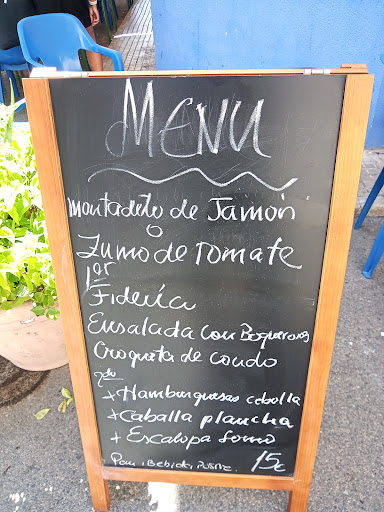 MENU
montadito de Jamón
o
Zumo de Tomate
1er
Fideúa
Ensalada con Boquerones
Croqueta de
2do
+ Hamburguesas cebolla
+ Caballa plancha
+ Escalopa
Pan, Bebida, Postre 15€